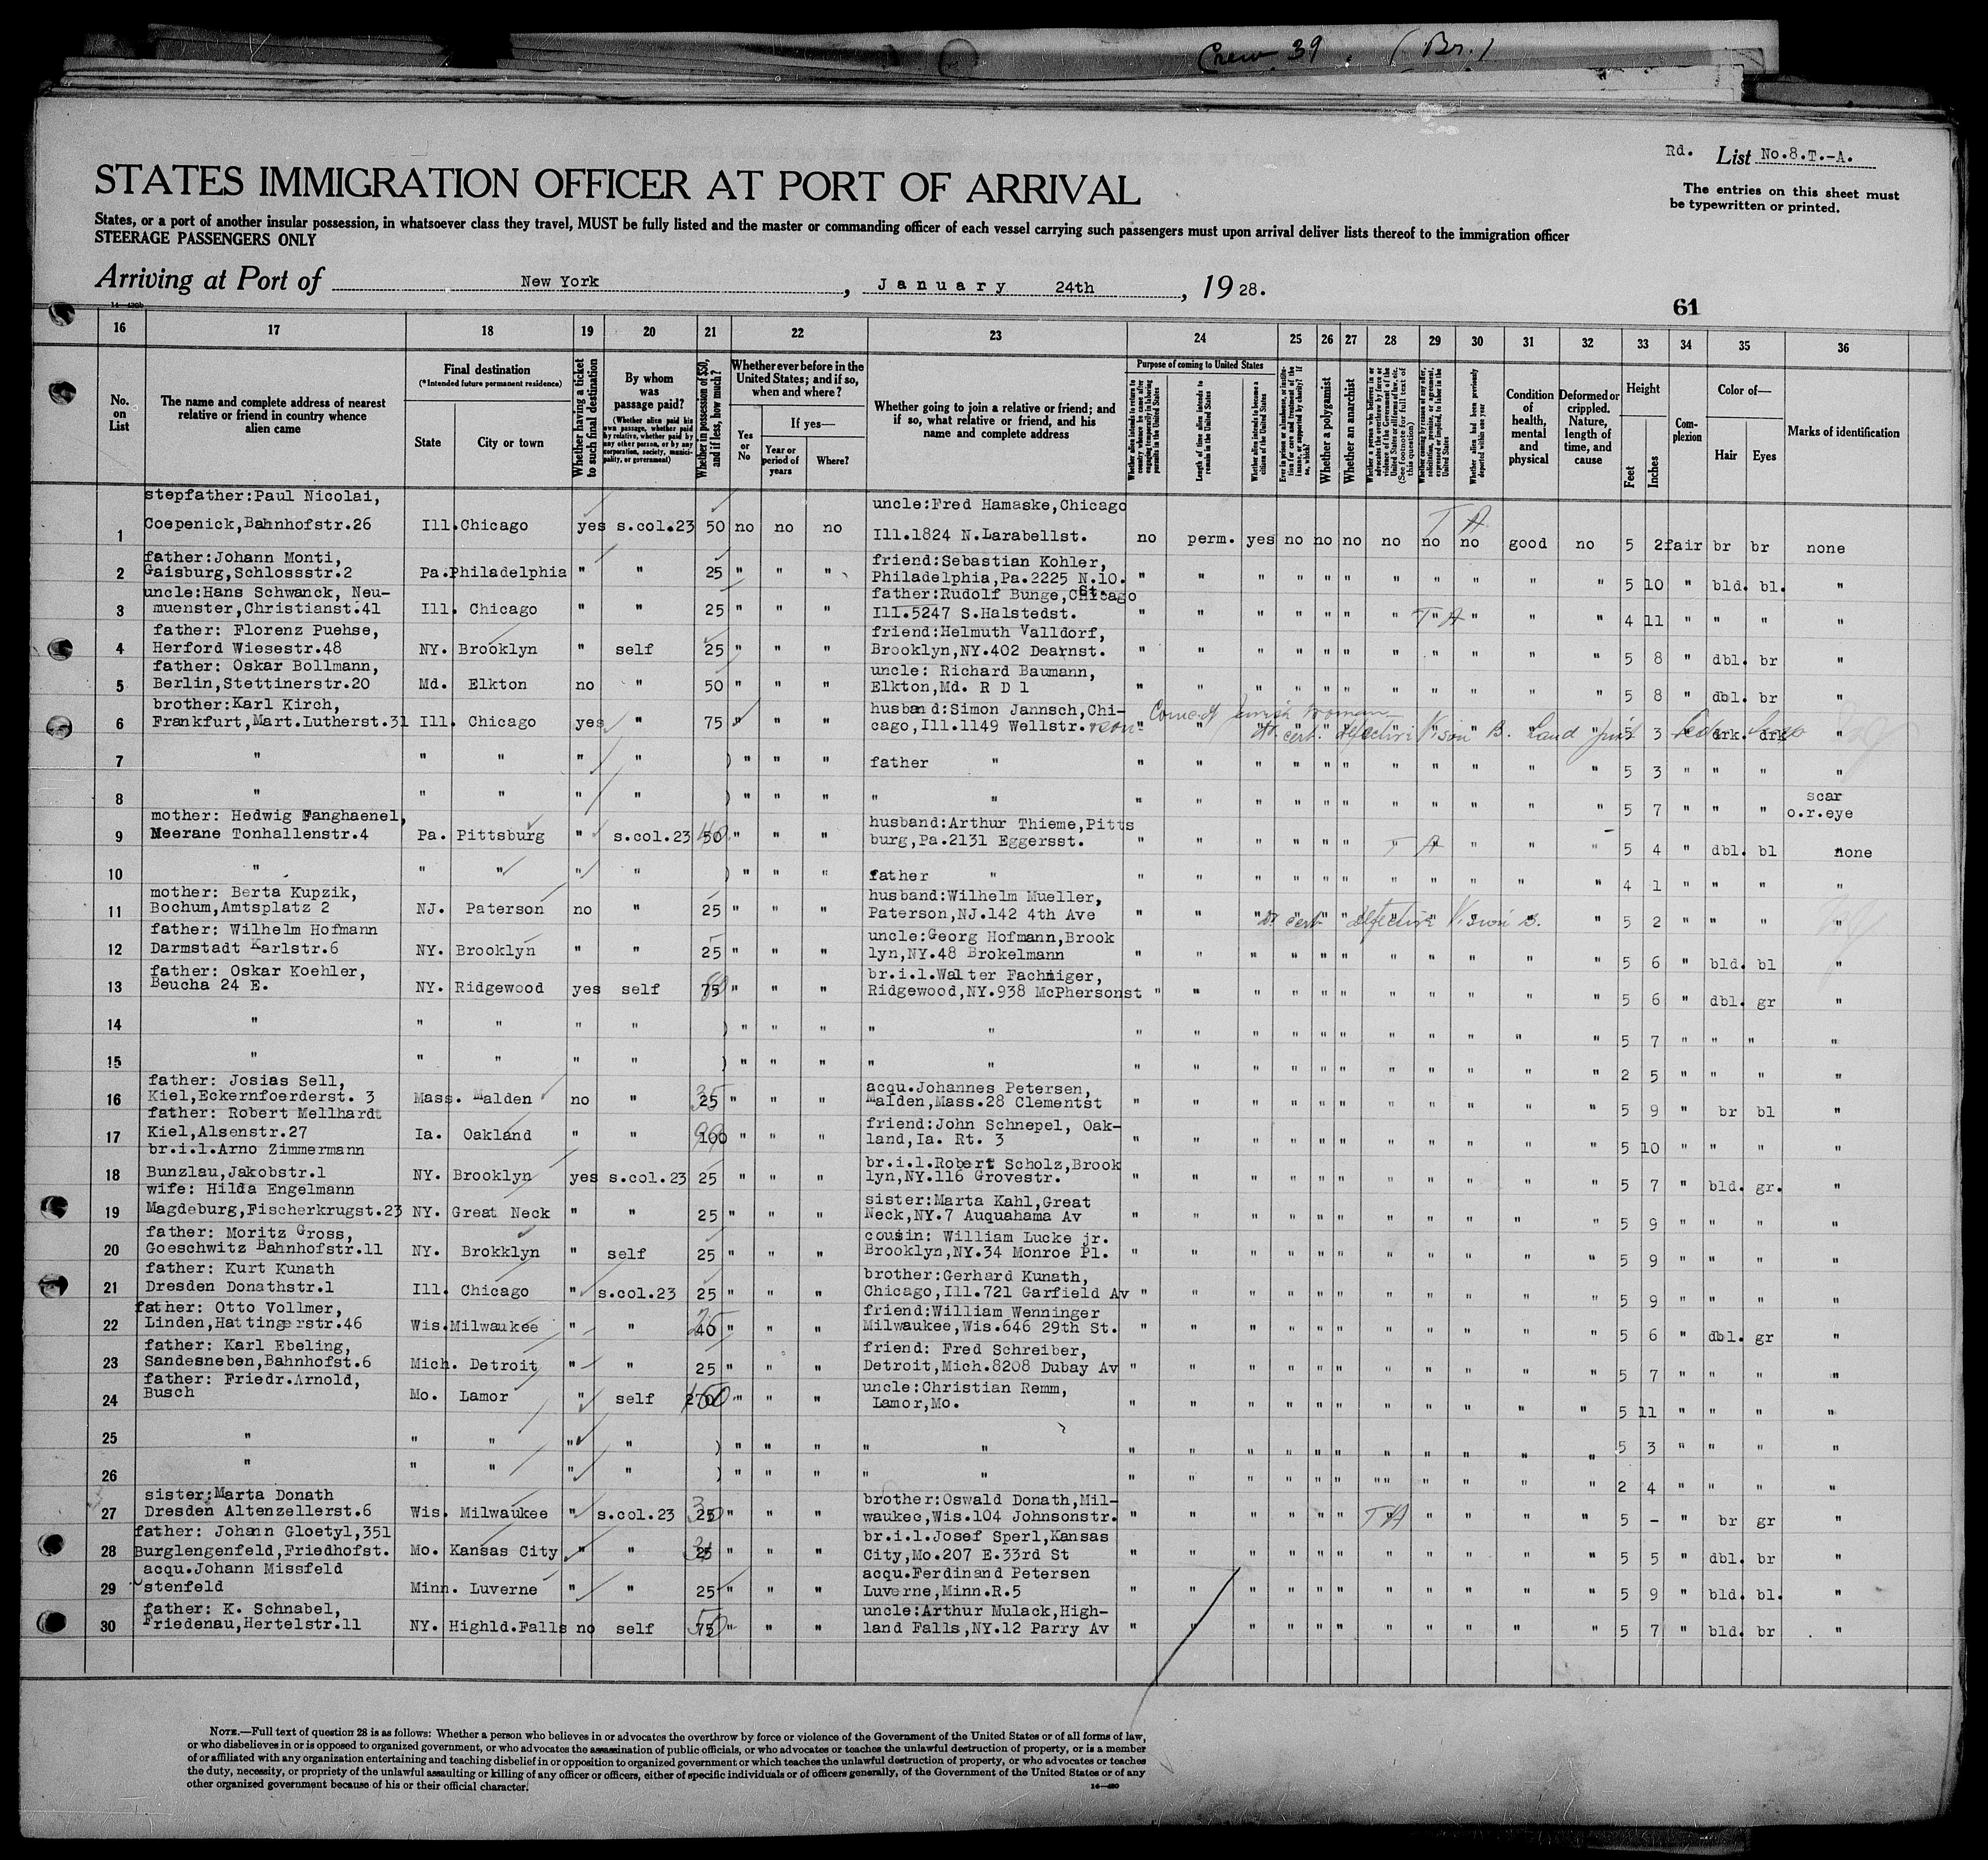 Crew 39. (Br.)
Rd. List No.8.T.-A.
STATES IMMIGRATION OFFICER AT PORT OF ARRIVAL
The entries on this sheet must
be typewritten or printed.
States, or a port of another insular possession, in whatsoever class they travel, MUST be fully listed and the master or commanding officer of each vessel carrying such passengers must upon arrival deliver lists thereof to the immigration officer
STEERAGE PASSENGERS ONLY
Arriving at Port of New York, January 24th, 1928.
61
16 17 18 19 20 21 22 23 24 25 26 27 28 29 30 31 32 33 34 35 36
No. on List
The name and complete address of nearest relative or friend in country whence alien came
Final destination
(*Intended future permanent residence)
State City or town
Whether having a ticket to such final destination
By whom was passage paid?
(Whether alien paid his own passage, whether paid by relative, whether paid by any other person, or by any corporation, society, municipality, or government)
Whether in possession of $50, and if less, how much?
Whether ever before in the United States; and if so, when and where?
Yes or No
If yes—
Year or period of years
Where?
Whether going to join a relative or friend; and if so, what relative or friend, and his name and complete address
Purpose of coming to United States
Whether alien intends to return to country whence he came after engaging temporarily in laboring pursuits in the United States
Length of time alien intends to remain in the United States
Whether alien intends to become a citizen of the United States
Ever in prison or almshouse, or institution for care and treatment of the insane, or supported by charity? If so, which?
Whether a polygamist
Whether an anarchist
Whether a person who believes in or advocates the overthrow by force or violence of the Government of the United States or all forms of law, etc. (See footnote for full text of this question)
Whether coming by reason of any offer, solicitation, promise, or agreement, expressed or implied, to labor in the United States
Whether alien had been previously deported within one year
Condition of health, mental and physical
Deformed or crippled. Nature, length of time, and cause
Height
Feet Inches
Complexion
Color of—
Hair Eyes
Marks of identification
stepfather:Paul Nicolai, uncle:Fred Hamaske,Chicago
1 Coepenick,Bahnhofstr.26 Ill. Chicago yes s.col.23 50 no no no Ill.1824 N.Larabellst. no perm. yes no no no no no no good no 5 2 fair br br none
T A
father:Johann Monti, friend:Sebastian Kohler,
2 Gaisburg,Schlossstr.2 Pa. Philadelphia " " 25 " " " Philadelphia,Pa.2225 N.10. St. " " " " " " " " " " " 5 10 " bld. bl. "
uncle:Hans Schwanck, Neu- father:Rudolf Bunge,Chicago
3 muenster,Christianst.41 Ill. Chicago " " 25 " " " Ill.5247 S.Halstedst. " " " " " " " T A " " " " 4 11 " " " "
father: Florenz Puehse, friend:Helmuth Valldorf,
4 Herford Wiesestr.48 NY. Brooklyn " self 25 " " " Brooklyn,NY.402 Dearnst. " " " " " " " " " " " 5 8 " dbl. br "
father: Oskar Bollmann, uncle: Richard Baumann,
5 Berlin,Stettinerstr.20 Md. Elkton no " 50 " " " Elkton,Md. R D 1 " " " " " " " " " " " 5 8 " dbl. br "
brother:Karl Kirch, husband:Simon Jannsch,Chi-
6 Frankfurt,Mart.Lutherst.31 Ill. Chicago yes " 75 " " " cago,Ill.1149 Wellstr. " " " " " " " " " " " 5 3 drk. drk "
Dr. cert. defective Vision B.
7 " " " " " ) " " " father " " " " " " " " " " " " 5 3 " " " "
scar
8 " " " " " ) " " " " " " " " " " " " " " " " 5 7 " " " o.r.eye
mother: Hedwig Fanghaenel, husband:Arthur Thieme,Pitts
9 Meerane Tonhallenstr.4 Pa. Pittsburg " s.col.23 50 " " " burg,Pa.2131 Eggersst. " " " " " " " T A " " " 5 4 " dbl. bl none
10 " " " " " ) " " " father " " " " " " " " " " " " 4 1 " " " "
mother: Berta Kupzik, husband:Wilhelm Mueller,
11 Bochum,Amtsplatz 2 NJ. Paterson no " 25 " " " Paterson,NJ.142 4th Ave " " " " " " " " " " " 5 2 " " " "
Dr. cert defective Vision B.
father: Wilhelm Hofmann uncle:Georg Hofmann,Brook
12 Darmstadt Karlstr.6 NY. Brooklyn " " 25 " " " lyn,NY.48 Brokelmann " " " " " " " " " " " 5 6 " bld. bl "
father: Oskar Koehler, br.i.l.Walter Fachniger,
13 Beucha 24 E. NY. Ridgewood yes self 75 " " " Ridgewood,NY.938 McPhersonst " " " " " " " " " " " 5 6 " dbl. gr "
14 " " " " " ) " " " " " " " " " " " " " " " " 5 7 " " " "
15 " " " " " ) " " " " " " " " " " " " " " " " 2 5 " " " "
father: Josias Sell, acqu.Johannes Petersen,
16 Kiel,Eckernfoerderst. 3 Mass. Malden no " 25 " " " Malden,Mass.28 Clementst " " " " " " " " " " " 5 9 " br bl "
father: Robert Mellhardt friend:John Schnepel, Oak-
17 Kiel,Alsenstr.27 Ia. Oakland " " 100 " " " land,Ia. Rt. 3 " " " " " " " " " " " 5 10 " " " "
br.i.l.Arno Zimmermann br.i.l.Robert Scholz,Brook
18 Bunzlau,Jakobstr.1 NY. Brooklyn yes s.col.23 25 " " " lyn,NY.116 Grovestr. " " " " " " " " " " " 5 7 " bld. gr. "
wife: Hilda Engelmann sister:Marta Kahl,Great
19 Magdeburg,Fischerkrugst.23 NY. Great Neck " " 25 " " " Neck,NY.7 Auquahama Av " " " " " " " " " " " 5 9 " " " "
father: Moritz Gross, cousin: William Lucke jr.
20 Goeschwitz Bahnhofstr.11 NY. Brokklyn " self 25 " " " Brooklyn,NY.34 Monroe Pl. " " " " " " " " " " " 5 9 " " " "
father: Kurt Kunath brother:Gerhard Kunath,
21 Dresden Donathstr.1 Ill. Chicago " s.col.23 25 " " " Chicago,Ill.721 Garfield Av " " " " " " " " " " " 5 9 " " " "
father: Otto Vollmer, friend:William Wenninger
22 Linden,Hattingerstr.46 Wis. Milwaukee " " 40 " " " Milwaukee,Wis.646 29th St. " " " " " " " " " " " 5 6 " dbl. gr "
father: Karl Ebeling, friend: Fred Schreiber,
23 Sandesneben,Bahnhofst.6 Mich. Detroit " " 25 " " " Detroit,Mich.8208 Dubay Av " " " " " " " " " " " 5 7 " " " "
father: Friedr.Arnold, uncle:Christian Remm,
24 Busch Mo. Lamor " self " " " Lamor,Mo. " " " " " " " " " " " 5 11 " " " "
25 " " " " " ) " " " " " " " " " " " " " " " " 5 3 " " " "
26 " " " " " ) " " " " " " " " " " " "" " " " " 2 4 " " " "
sister:Marta Donath brother:Oswald Donath,Mil-
27 Dresden Altenzellerst.6 Wis. Milwaukee " s.col.23 25 " " " waukee,Wis.104 Johnsonstr. " " " " " " T A " " " " 5 - " br gr "
father: Johann Gloetyl,351 br.i.l.Josef Sperl,Kansas
28 Burglengenfeld,Friedhofst. Mo. Kansas City " " 25 " " " City,Mo.207 E.33rd St " " " " " " " " " " " 5 5 " dbl. br "
acqu.Johann Missfeld acqu.Ferdinand Petersen
29 stenfeld Minn. Luverne " " 25 " " " Luverne,Minn.R.5 " " " " " " " " " " " 5 9 " bld. bl. "
father: K. Schnabel, uncle:Arthur Mulack,High-
30 Friedenau,Hertelstr.11 NY. Highld.Falls no self 75 " " " land Falls,NY.12 Parry Av " " " " " " " " " " " 5 7 " bld. br "
NOTE.—Full text of question 28 is as follows: Whether a person who believes in or advocates the overthrow by force or violence of the Government of the United States or of all forms of law,
or who disbelieves in or is opposed to organized government, or who advocates the assassination of public officials, or who advocates or teaches the unlawful destruction of property, or is a member
of or affiliated with any organization entertaining and teaching disbelief in or opposition to organized government or which teaches the unlawful destruction of property, or who advocates or teaches
the duty, necessity, or propriety of the unlawful assaulting or killing of any officer or officers, either of specific individuals or of officers generally, of the Government of the United States or of any
other organized government because of his or their official character.